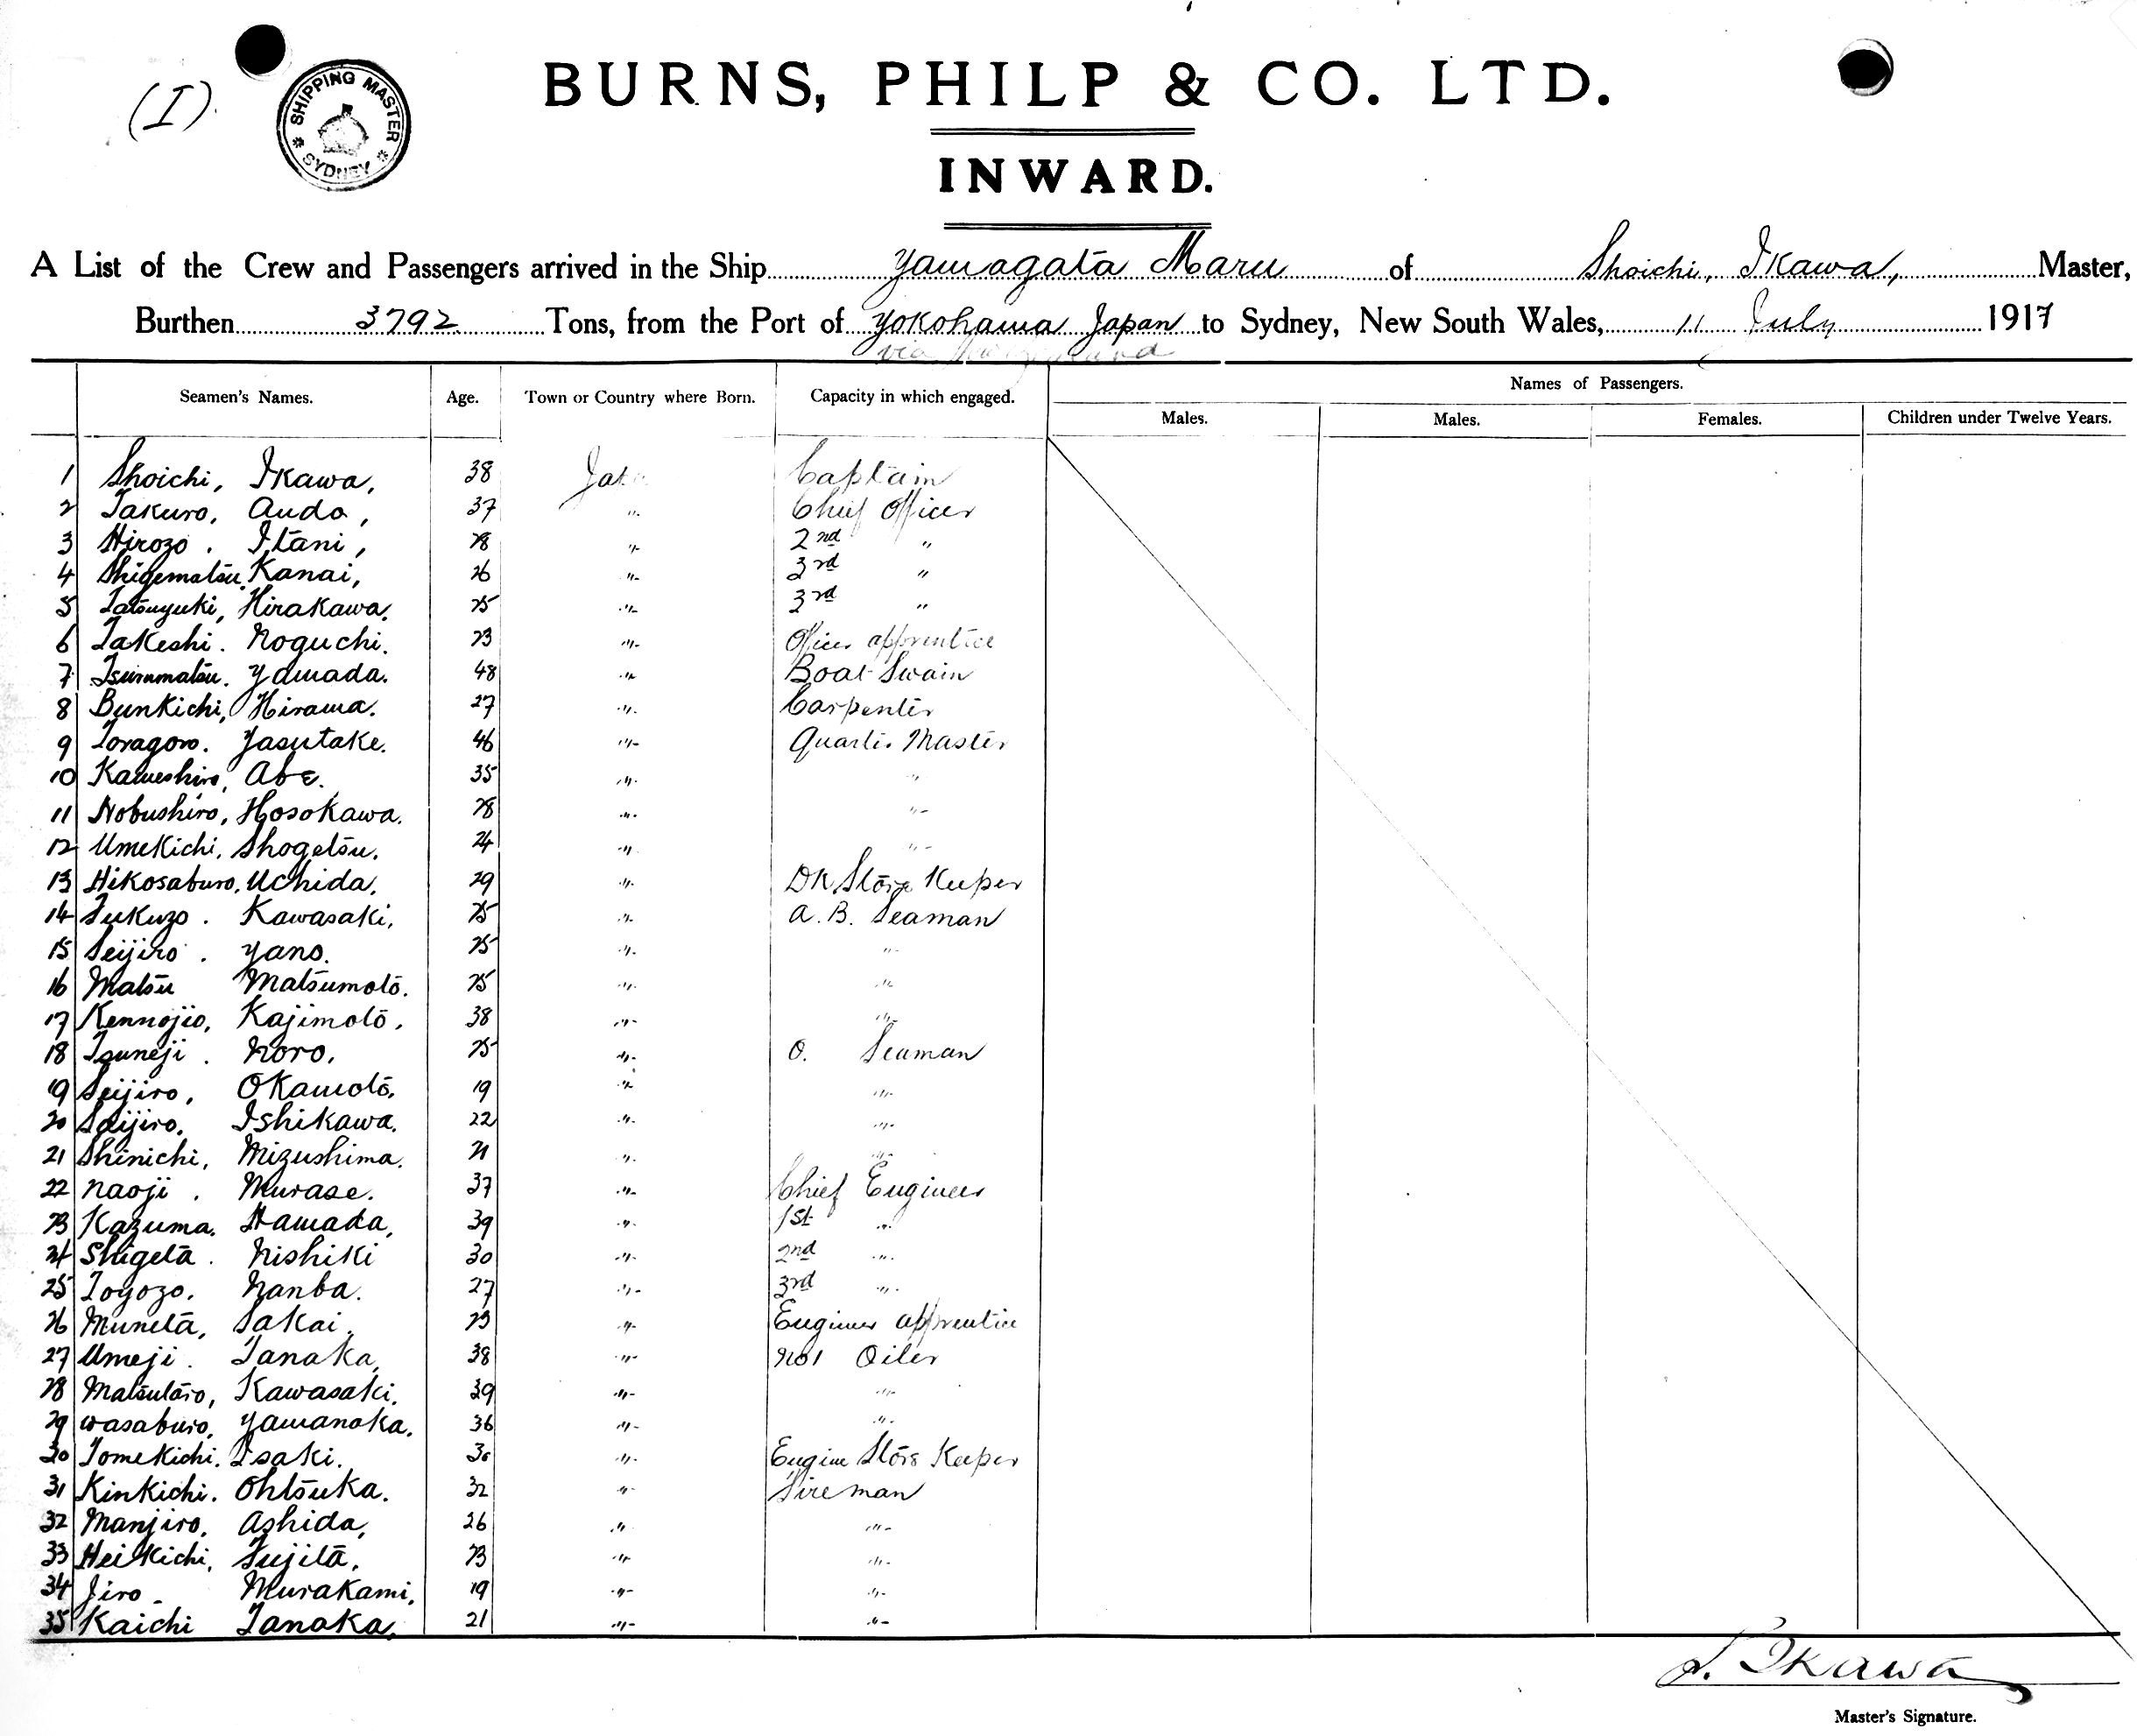 (I).
SHIPPING MASTER
SYDNEY
BURNS, PHILP & CO. LTD.
INWARD.
A List of the Crew and Passengers arrived in the Ship Yamagata Maru of Shoichi, Ikawa, Master,
Burthen 3792 Tons, from the Port of Yokohama Japan to Sydney, New South Wales, 11 July 1917
via
Seamen's Names. Age. Town or Country where Born. Capacity in which engaged. Names of Passengers.
Males. Males. Females. Children under Twelve Years.
1 Shoichi, Ikawa, 38 Captain
2 Takuro, Ando, 37 " Chief Officer
3 Hirozo. Itani, 28 " 2nd "
4 Shigematsu, Kanai, 26 " 3rd "
5 Tatsuyuki, Hirakawa, 25 " 3rd "
6 Takeshi. Noguchi. 23 " Officer apprentice
7 Tsurumatsu. Yamada. 48 " Boat Swain
8 Bunkichi, Hirama. 27 " Carpenter
9 Toragoro. Yasutake. 46 " Quarter Master
10 Kameshiro, Abe. 35 " "
11 Nobushiro, Hosokawa. 28 " "
12 Umekichi, Shogetsu. 24 " "
13 Hikosaburo, Uchida, 29 " DK Store Keeper
14 Fukuzo. Kawasaki, 25 " A.B. Seaman
15 Seijiro. Yano. 25 " "
16 Matsu Matsumoto. 25 " "
17 Kennojio, Kajimoto, 38 " "
18 Tsuneji. Noro, 25 " O. Seaman
19 Seijiro, Okamoto, 19 " "
20 Seijiro, Ishikawa. 22 " "
21 Shinichi, Mizushima. 21 " "
22 Naoji. Murase. 37 " Chief Engineer
23 Kazuma. Hamada, 39 " 1st "
24 Shigeta. Nishiki 30 " 2nd "
25 Toyozo. Nanba. 27 " 3rd "
26 Muneta, Sakai. 23 " Engineer apprentice
27 Umeji. Tanaka, 38 " No1 Oiler
28 Matsutaro, Kawasaki. 39 " "
29 Wasaburo, Yamanaka. 36 " "
30 Tomekichi. Isaki. 30 " Engine Store Keeper
31 Kinkichi. Ohtsuka. 32 " Fireman
32 Manjiro. Ashida, 26 " "
33 Heikichi, Fujita, 23 " "
34 Jiro Murakami, 19 " "
35 Kaichi Tanaka, 21 " "
S. Ikawa
Master's Signature.